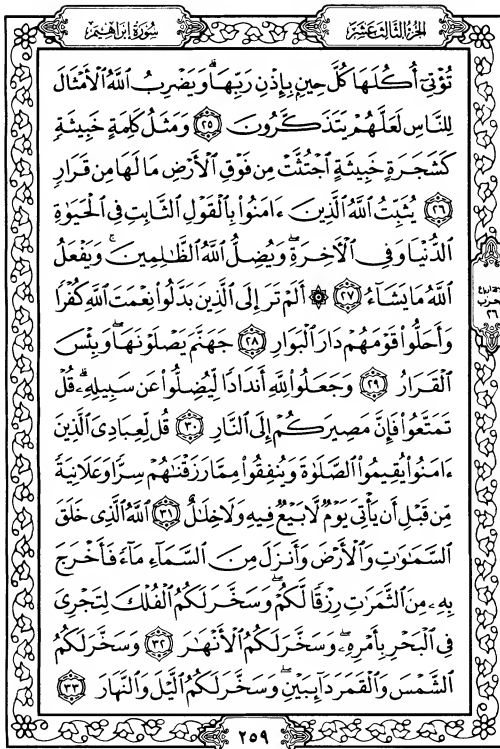 سُورَةُ إِبْرَاهِيم
الجُزْءُ الثَّالِثَ عَشَرَ
تُؤْتِىٓ أُكُلَهَا كُلَّ حِينٍۭ بِإِذْنِ رَبِّهَاۗ وَيَضْرِبُ ٱللَّهُ ٱلْأَمْثَالَ
لِلنَّاسِ لَعَلَّهُمْ يَتَذَكَّرُونَ ٢٥ وَمَثَلُ كَلِمَةٍ خَبِيثَةٍ
كَشَجَرَةٍ خَبِيثَةٍ ٱجْتُثَّتْ مِن فَوْقِ ٱلْأَرْضِ مَا لَهَا مِن قَرَارٍ
٢٦ يُثَبِّتُ ٱللَّهُ ٱلَّذِينَ ءَامَنُوا۟ بِٱلْقَوْلِ ٱلثَّابِتِ فِى ٱلْحَيَوٰةِ
ٱلدُّنْيَا وَفِى ٱلْءَاخِرَةِۖ وَيُضِلُّ ٱللَّهُ ٱلظَّٰلِمِينَۚ وَيَفْعَلُ
ٱللَّهُ مَا يَشَآءُ ٢٧ ۞ أَلَمْ تَرَ إِلَى ٱلَّذِينَ بَدَّلُوا۟ نِعْمَتَ ٱللَّهِ كُفْرًا
وَأَحَلُّوا۟ قَوْمَهُمْ دَارَ ٱلْبَوَارِ ٢٨ جَهَنَّمَ يَصْلَوْنَهَاۖ وَبِئْسَ
ٱلْقَرَارُ ٢٩ وَجَعَلُوا۟ لِلَّهِ أَندَادًا لِّيُضِلُّوا۟ عَن سَبِيلِهِۦۗ قُلْ
تَمَتَّعُوا۟ فَإِنَّ مَصِيرَكُمْ إِلَى ٱلنَّارِ ٣٠ قُل لِّعِبَادِىَ ٱلَّذِينَ
ءَامَنُوا۟ يُقِيمُوا۟ ٱلصَّلَوٰةَ وَيُنفِقُوا۟ مِمَّا رَزَقْنَٰهُمْ سِرًّا وَعَلَانِيَةً
مِّن قَبْلِ أَن يَأْتِىَ يَوْمٌ لَّا بَيْعٌ فِيهِ وَلَا خِلَٰلٌ ٣١ ٱللَّهُ ٱلَّذِى خَلَقَ
ٱلسَّمَٰوَٰتِ وَٱلْأَرْضَ وَأَنزَلَ مِنَ ٱلسَّمَآءِ مَآءً فَأَخْرَجَ
بِهِۦ مِنَ ٱلثَّمَرَٰتِ رِزْقًا لَّكُمْۖ وَسَخَّرَ لَكُمُ ٱلْفُلْكَ لِتَجْرِىَ
فِى ٱلْبَحْرِ بِأَمْرِهِۦۖ وَسَخَّرَ لَكُمُ ٱلْأَنْهَٰرَ ٣٢ وَسَخَّرَ لَكُمُ
ٱلشَّمْسَ وَٱلْقَمَرَ دَآئِبَيْنِۖ وَسَخَّرَ لَكُمُ ٱلَّيْلَ وَٱلنَّهَارَ ٣٣
حزب
٢٦
٢٥٩